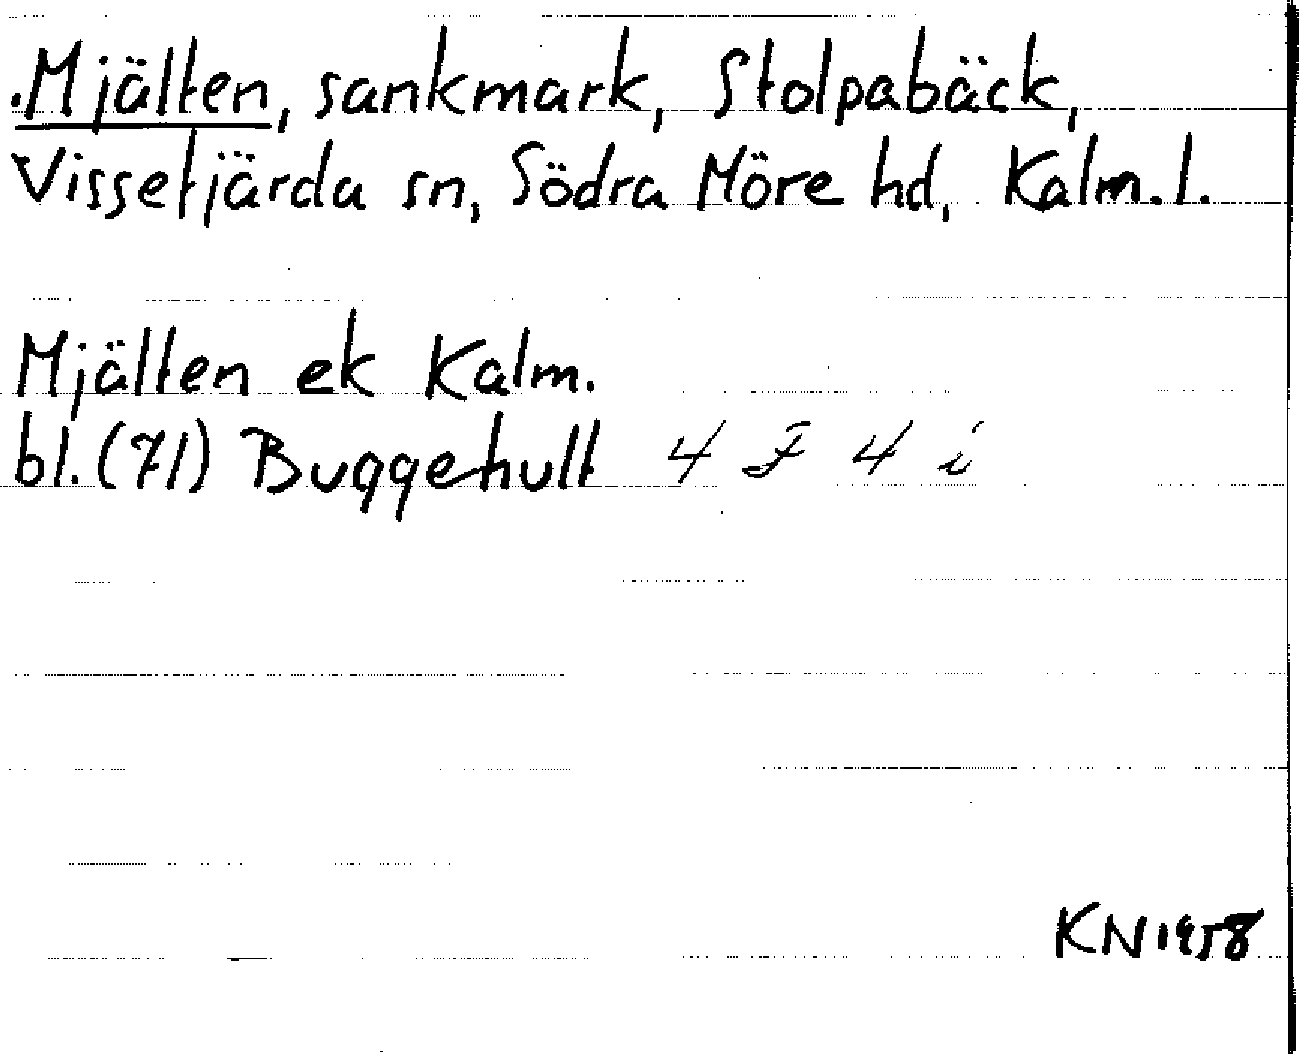 .Mjälten, sankmark, Stolpabäck,
Vissefjärda sn, Södra Möre hd, Kalm. l.
Mjälten ek Kalm.
bl. (71) Buggehult 4 F 4 i
KN 1958